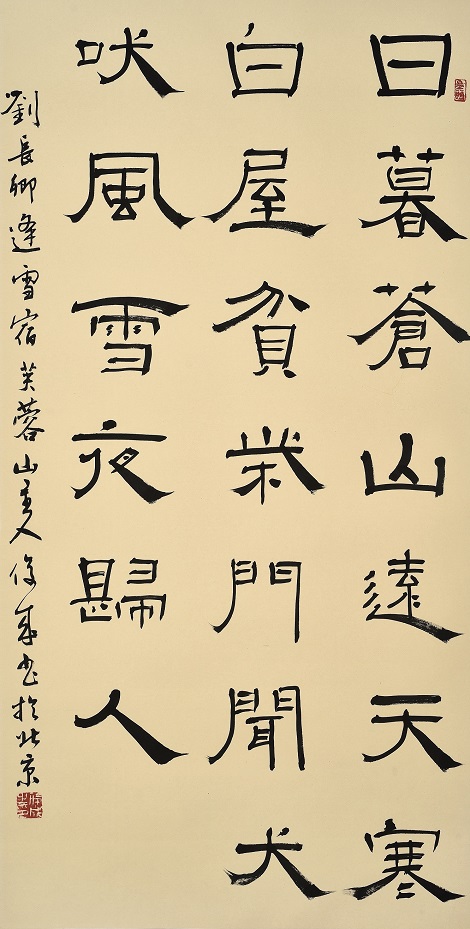 日暮蒼山遠天寒
白屋貧柴門聞犬
吠風雪夜歸人
劉長卿逢雪宿芙蓉山主人书於北京